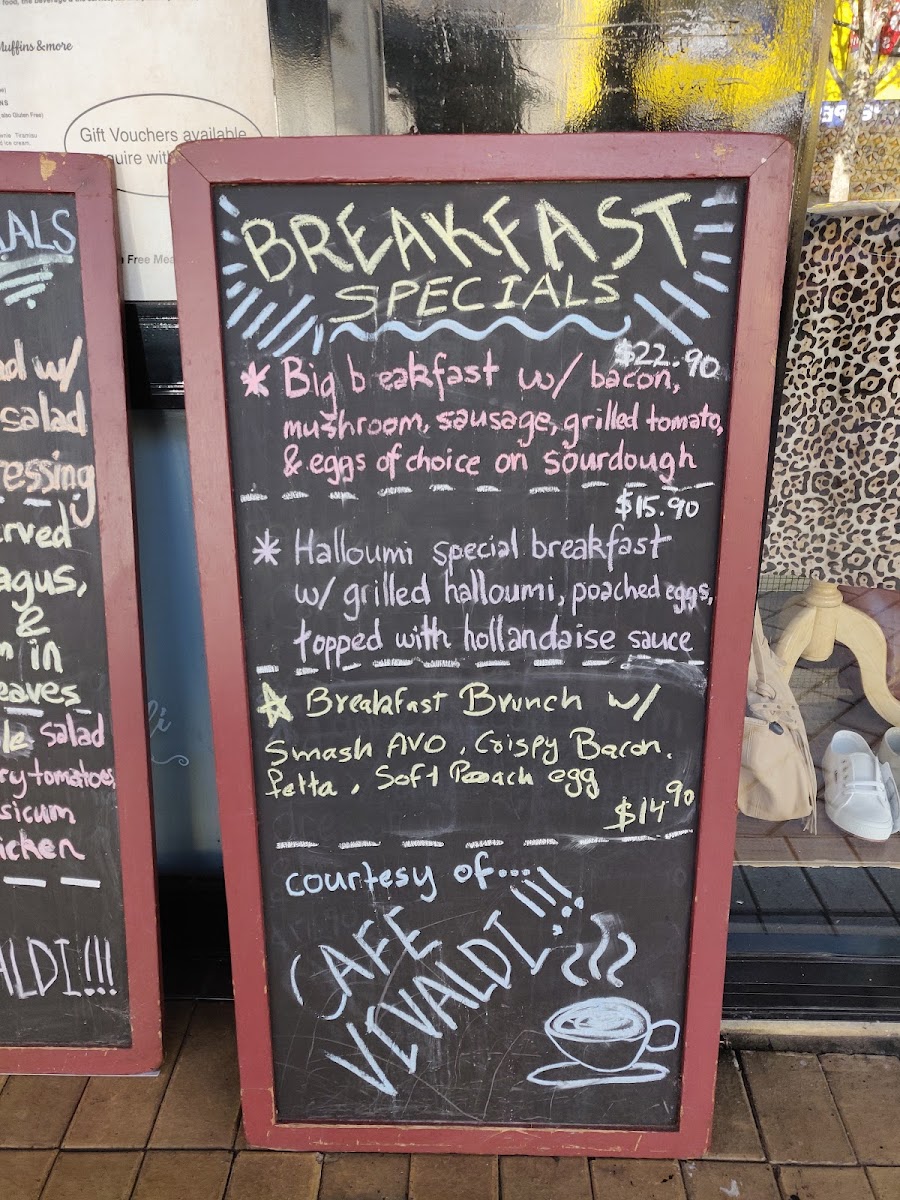 Muffins & more
also Gluten Free)
Tiramisu
ice cream.
Gift Vouchers available
quire with
Free Mea
IALS
w/
salad
essing
rved
agus,
&
in
eaves
le salad
ry tomatoes
sicum
icken
ALDI!!!
BREAKFAST
SPECIALS
$22.90
* Big b eakfast w/ bacon,
mushroom, sausage, grilled tomato,
& eggs of choice on sourdough
$15.90
* Halloumi special breakfast
w/ grilled halloumi, poached eggs,
topped with hollandaise sauce
Breakfast Brunch w/
Smash AVO, Crispy Bacon.
fetta, Soft Poach egg
$14.90
courtesy of....
CAFE
VIVALDI!!!